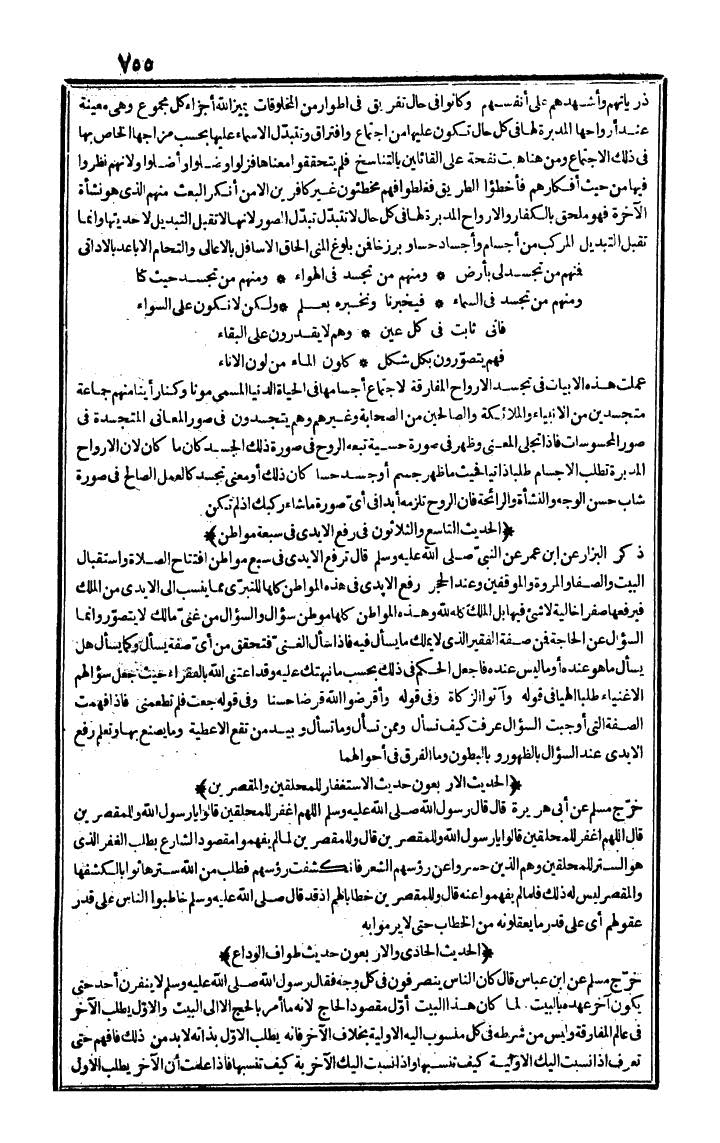 ٧٥٥
ذرياتهم وأشهدهم على أنفسهم وكانوا فى حال تفريق فى اطوار من المخلوقات يميز الله أجزاء كل مجموع وهى معينة
عند أرواحها المدبرة لها فى كل حال تكون عليها من اجتماع وافتراق وتتبدّل الاسماء عليها بحسب مزاجها الخاص بها
فى ذلك الاجتماع ومن هنا هبت نفحة على القائلين بالتناسخ فلم يتحققوا معناها فزلوا وضلوا وأضلوا ولانهم نظروا
فيها من حيث أفكارهم فأخطؤا الطريق فغلطوا فهم مخطئون غير كافرين الا من أنكر البعث منهم الذى هو نشأة
الآخرة فهو ملحق بالكفار والارواح المدبرة لها فى كل حال لا تتبدّل تبدّل الصور لانها لا تقبل التبديل لاحديتها وانما
تقبل التبديل المركب من أجسام وأجساد حسا وبرزخا فمن بلوغ المنى الحاق الاسافل بالاعالى والتحام الاباعد بالادانى
فنهم من تجسد لى بأرض * ومنهم من تجسد فى الهواء * ومنهم من تجسد حيث كنا
ومنهم من تجسد فى السماء * فيخبرنا ونخبره بعلم * ولكن لا نكون على السواء
فانى ثابت فى كل عين * وهم لا يقدرون على البقاء
فهم يتصوّرون بكل شكل * كلون الماء من لون الاناء
عملت هذه الابيات فى تجسد الارواح المفارقة لاجتماع أجسامها فى الحياة الدنيا المسمى موتا وكنا رأينا منهم جماعة
متجسدين من الانبياء والملائكة والصالحين من الصحابة وغيرهم وهم يتجسدون فى صور المعانى المتجسدة فى
صور المحسوسات فاذا تجلى المعنى وظهر فى صورة حسية تبعه الروح فى صورة ذلك الجسد كان ما كان لان الارواح
المدبرة تطلب الاجسام طلبا ذاتيا فحيث ما ظهر جسم أو جسد حسا كان ذلك أو معنى تجسد كالعمل الصالح فى صورة
شاب حسن الوجه والنشأة والرائحة فان الروح تلزمه أبدا فى أىّ صورة ما شاء ركبك اذ لم تكن
﴿الحديث التاسع والثلاثون فى رفع الايدى فى سبعة مواطن﴾
ذكر البزار عن ابن عمر عن النبىّ صلى الله عليه وسلم قال ترفع الايدى فى سبع مواطن افتتاح الصلاة واستقبال
البيت والصفا والمروة والموقفين وعند الحجر رفع الايدى فى هذه المواطن كلها للتبرّى مما ينسب الى الايدى من الملك
فيرفعها صفرا خالية لا شئ فيها بل الملك كله لله وهذه المواطن كلها موطن سؤال والسؤال من غنىّ مالك لا يتصوّر وانما
السؤال عن الحاجة فمن صفة الفقير الذى لا يملك ما يسأل فيه فاذا سأل الغنىّ فتحقق من أىّ صفة يسأل وكما يسأل هل
يسأل ما هو عنده أو ما ليس عنده فاجعل الحكم فى ذلك بحسب ما نبهتك عليه وقد اعتنى الله بالفقراء حيث جعل سؤالهم
الاغنياء طلبا الهيا فى قوله وآتوا الزكاة وفى قوله وأقرضوا الله قرضا حسنا وفى قوله جعت فلم تطعمنى فاذا فهمت
الصفة التى أوجبت السؤال عرفت كيف تسأل وممن تسأل وما تسأل وبيد من تقع الاعطية وما يصنع بها وتعلم رفع
الايدى عند السؤال بالظهور وبالبطون وما الفرق فى أحوالهما
﴿الحديث الاربعون حديث الاستغفار للمحلقين والمقصرين﴾
خرّج مسلم عن أبى هريرة قال قال رسول الله صلى الله عليه وسلم اللهم اغفر للمحلقين قالوا يا رسول الله وللمقصرين
قال اللهم اغفر للمحلقين قالوا يا رسول الله وللمقصرين قال وللمقصرين لما لم يفهموا مقصود الشارع بطلب الغفر الذى
هو الستر للمحلقين وهم الذين حسروا عن رؤسهم الشعر فانكشفت رؤسهم فطلب من الله سترها ثوابا لكشفها
والمقصر ليس له ذلك فلما لم يفهموا عنه قال وللمقصرين خطابا لهم اذ قد قال صلى الله عليه وسلم خاطبوا الناس على قدر
عقولهم أى على قدر ما يعقلونه من الخطاب حتى لا يرموا به
﴿الحديث الحادى والاربعون حديث طواف الوداع﴾
خرّج مسلم عن ابن عباس قال كان الناس ينصرفون فى كل وجه فقال رسول الله صلى الله عليه وسلم لا ينفرن أحد حتى
يكون آخر عهده بالبيت لما كان هذا البيت أوّل مقصود الحاج لانه ما أمر بالحج الا الى البيت والاوّل يطلب الآخر
فى عالم المفارقة وليس من شرطه فى كل منسوب اليه الاولية بخلاف الآخر فانه يطلب الاوّل بذاته لابد من ذلك فافهم حتى
تعرف اذا نسبت اليك الاوّلية كيف تنسبها واذا نسبت اليك الآخرية كيف تنسبها فاذا علمت أن الآخر يطلب الاول